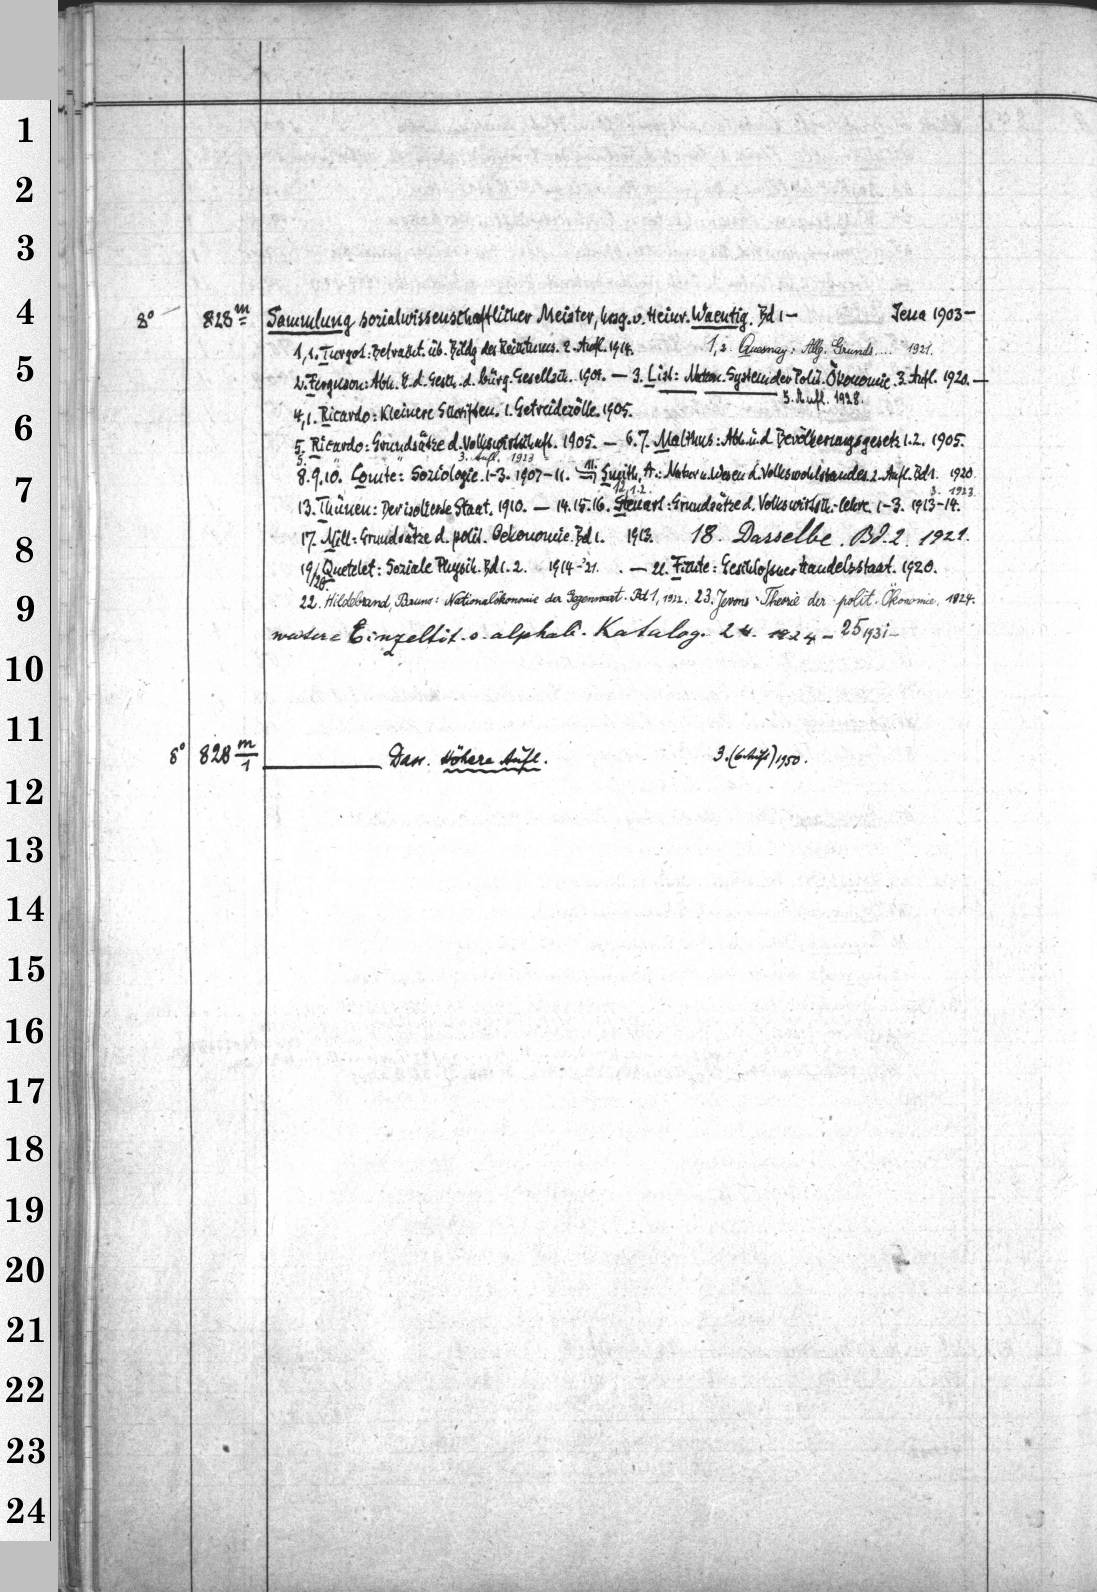 1
2
3
4
5
6
7
8
9
10
11
12
13
14
15
16
17
18
19
20
21
22
23
24
8° 828 m Sammlung sozialwissenschaftlicher Meister, hrsg. v. Heinr. Waentig. Bd 1- Jena 1903-
1,1. Turgot: Betracht. üb. Bildg des Reichtums. 2. Aufl. 1914. 1,2. Quesnay: Allg. Grunds.... 1921.
2. Ferguson: Abh. ü. d. Gesch. d. bürg. Gesellsch. 1904. — 3. List: Nation. System der Polit. Ökonomie. 3. Aufl. 1920. —
5. Aufl. 1928.
4,1. Ricardo: Kleinere Schriften. 1. Getreidezölle. 1905.
5. Ricardo: Grundsätze d. Volkswirtschaft. 1905. — 6.7. Malthus: Abh. ü. d. Bevölkerungsgesetz 1.2. 1905.
5. 3. Aufl. 1923
8.9.10. Comte: Soziologie. 1-3. 1907-11. 11. Smith, A.: Natur u. Wesen d. Volkswohlstandes. 2. Aufl. Bd 1. 1920
12, 1.2. 3. 1923
13. Thünen: Der isolierte Staat. 1910. — 14.15.16. Steuart: Grundsätze d. Volkswirtsch.-lehre. 1-3. 1913-14.
17. Mill: Grundsätze d. polit. Oekonomie. Bd 1. 1913. 18. Dasselbe. Bd. 2. 1921.
19/20. Quetelet: Soziale Physik. Bd 1. 2. 1914-'21. — 21. Fichte: Geschloßner Handelsstaat. 1920.
22. Hildebrand, Bruno: Nationalökonomie der Gegenwart. Bd 1, 1922. 23. Jevons: Theorie der polit. Ökonomie. 1924.
weitere Einzeltit. s. alphab. Katalog. 24. 1924 - 25 1931-
8° 828 m/1 ——— Dass. Höhere Aufl. 3. 1950.